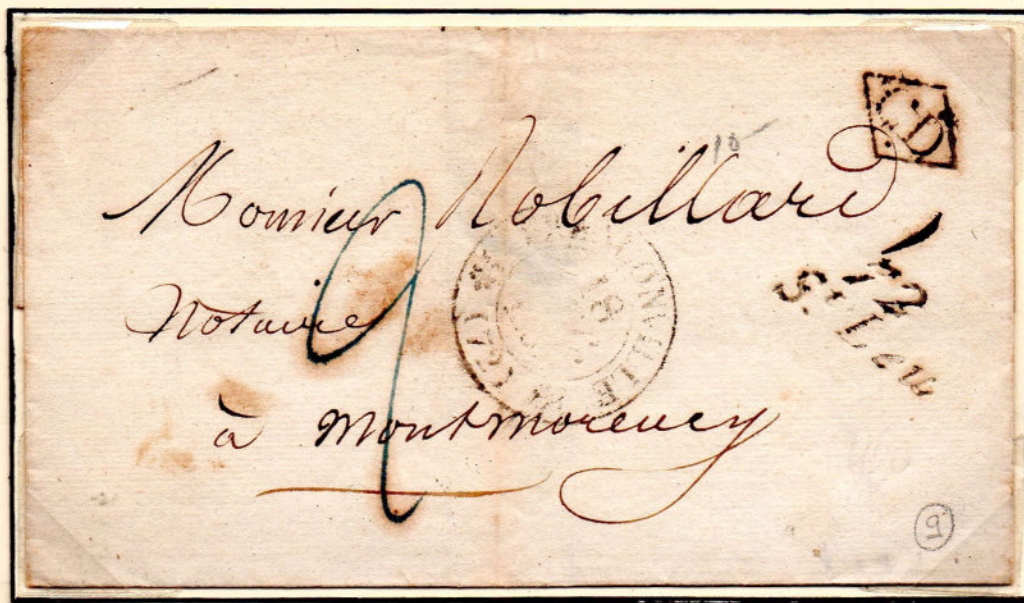 CD
10
Monsieur Robillard
72
St Leu
Notaire
2
(72)
18
à Montmorency
9